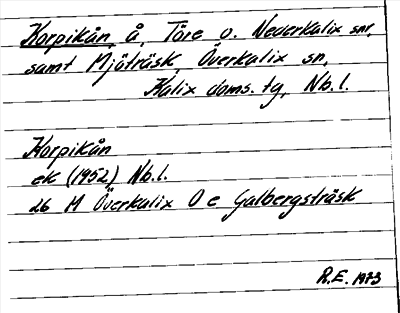 Korpikån, å, Töre o. Nederkalix snr,
samt Mjöträsk, Överkalix sn,
Kalix doms. tg, Nb. l.
Korpikån
ek (1952), Nb. l.
26 M Överkalix O e Galbergsträsk
R.E. 1973